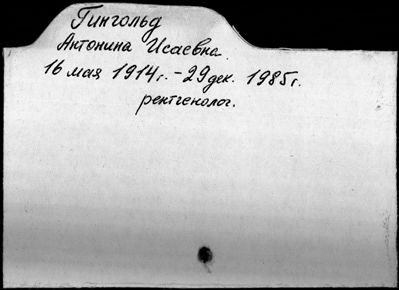 Гингольд
Антонина Исаевна.
16 мая 1914г. - 29 дек. 1985г.
рентгенолог.